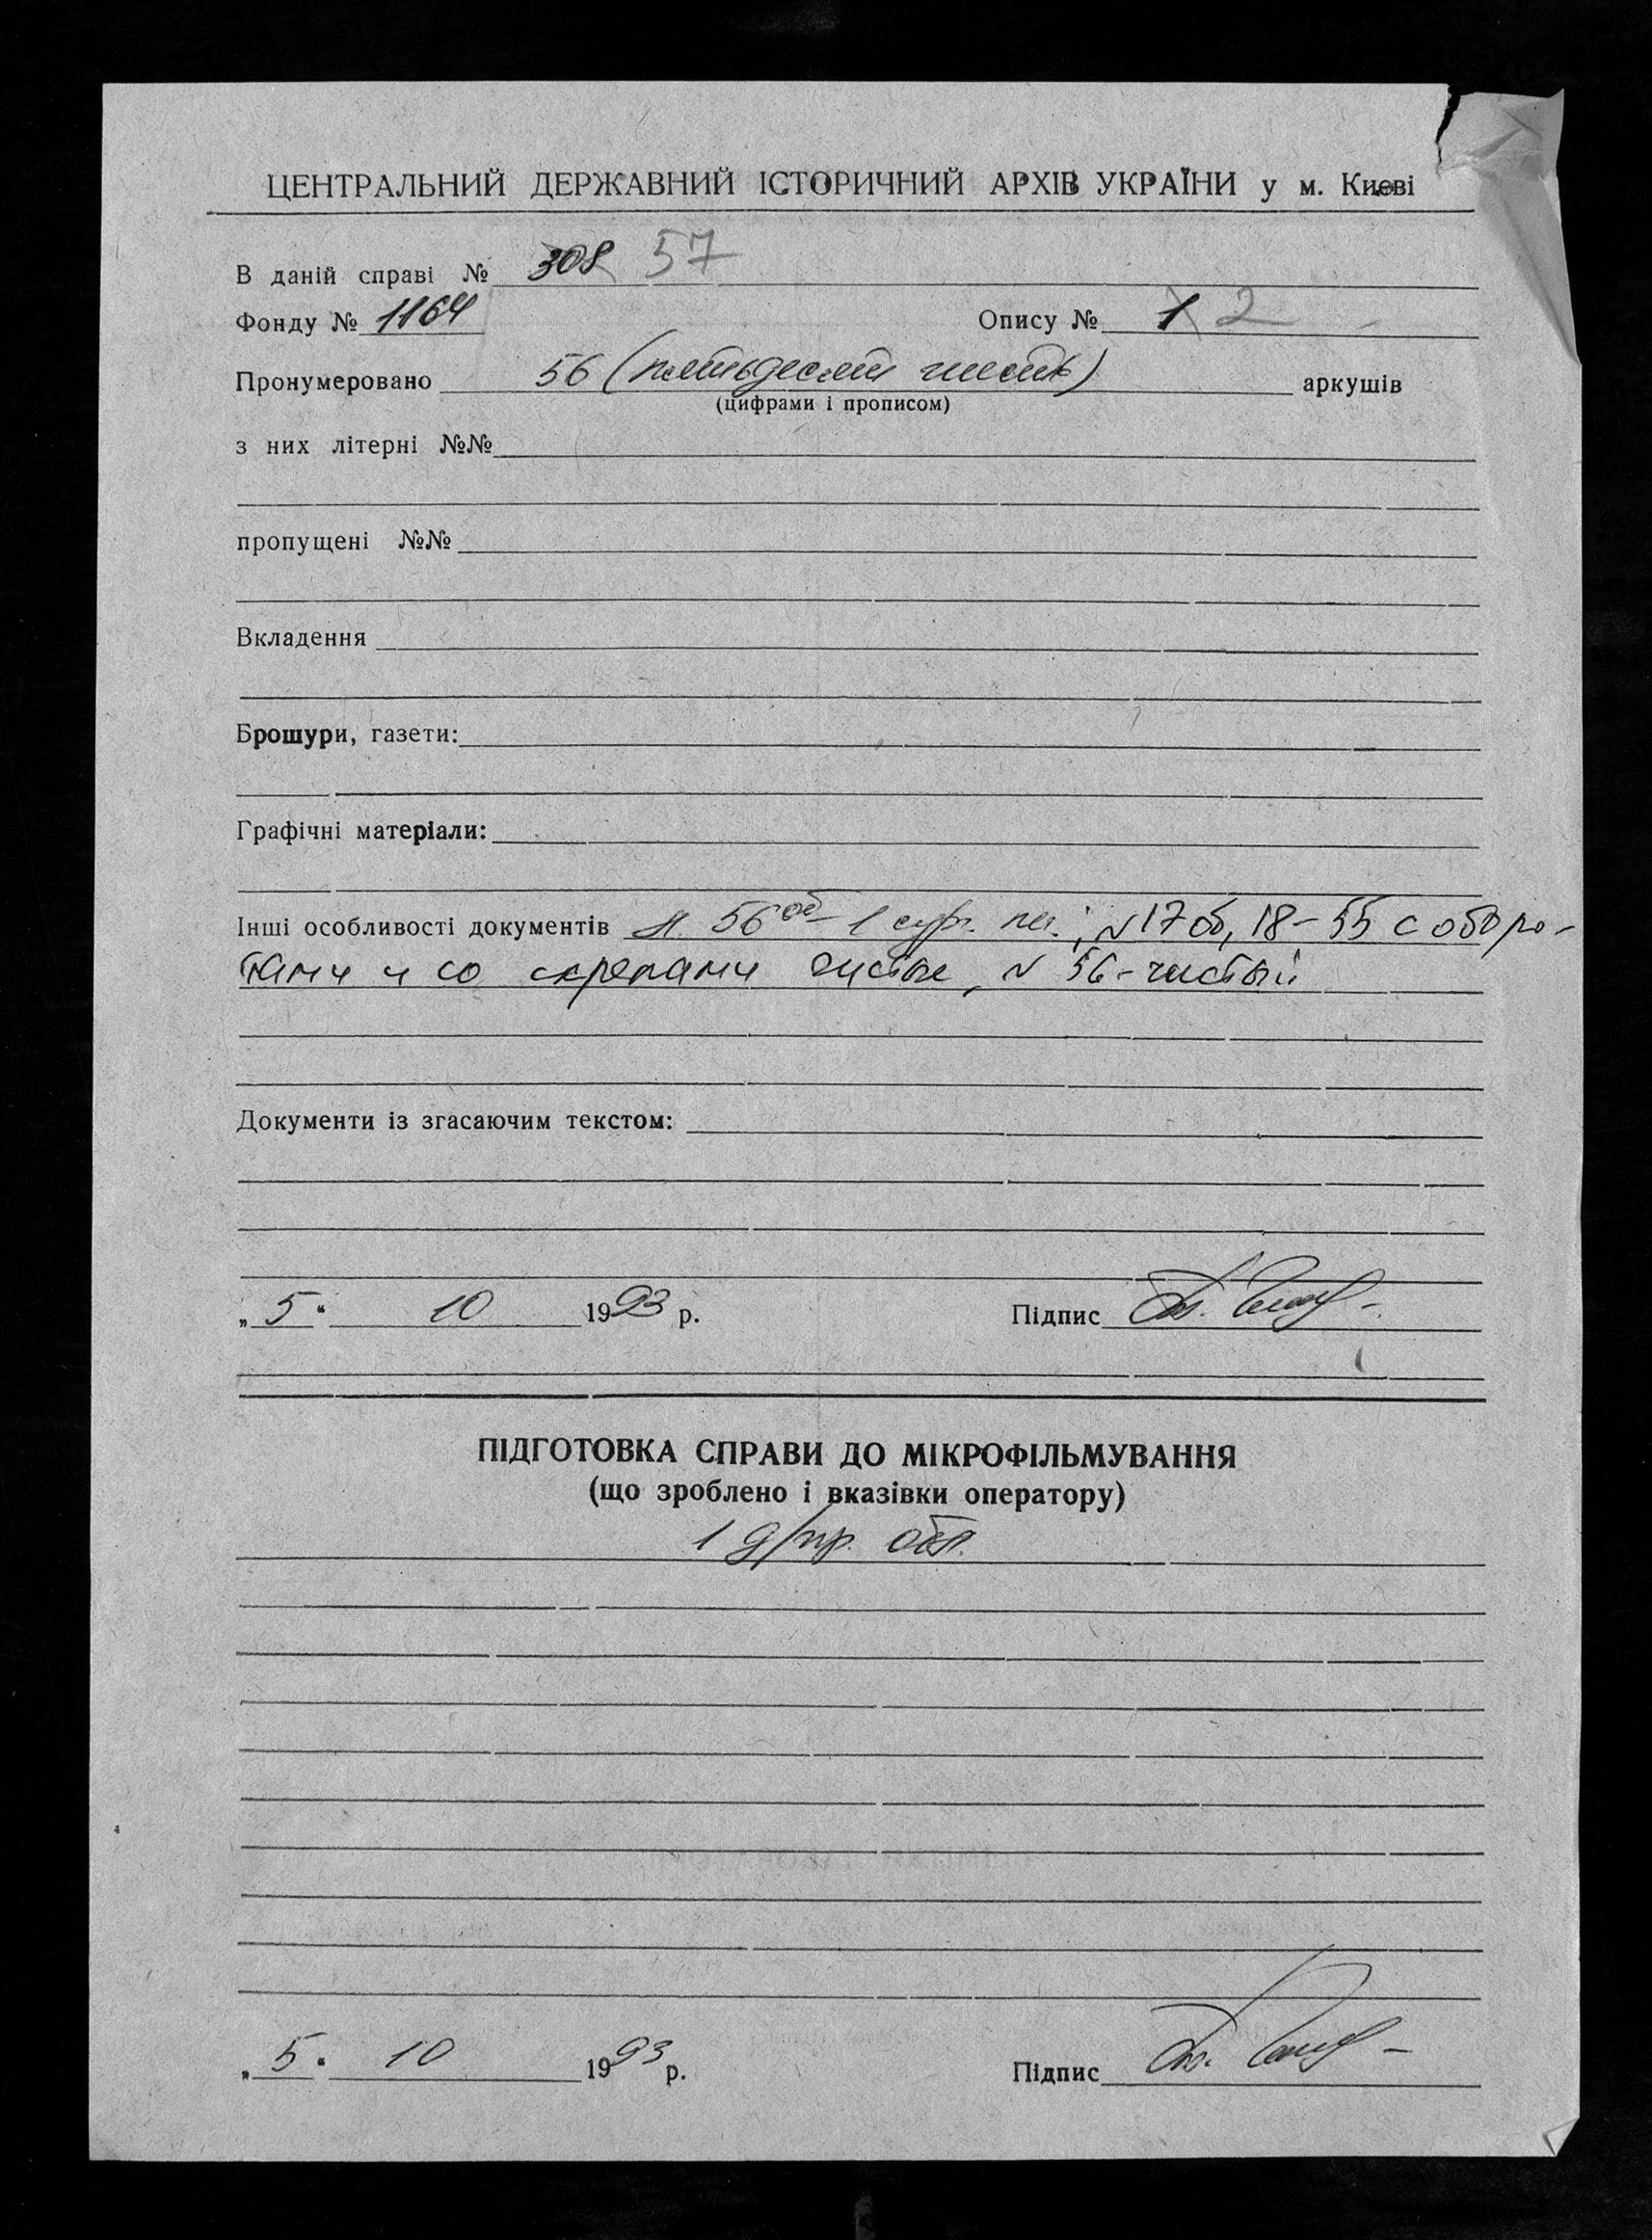 ЦЕНТРАЛЬНИЙ ДЕРЖАВНИЙ ІСТОРИЧНИЙ АРХІВ УКРАЇНИ у м. Києві
В даній справі № 308 57
Фонду № 1164 Опису № 1 2
Пронумеровано 56 (пятьдесят шесть) аркушів
(цифрами і прописом)
з них літерні №№
пропущені №№
Вкладення
Брошури, газети:
Графічні матеріали:
Інші особливості документів л. 56 об – 1 сург. печ.; л 17 об, 18 – 55 с оборо-
тами и со скрепами чистые, л 56 – чистый
Документи із згасаючим текстом:
„ 5 “ 10 1993 р. Підпис
ПІДГОТОВКА СПРАВИ ДО МІКРОФІЛЬМУВАННЯ
(що зроблено і вказівки оператору)
1
„ 5 “ 10 1993 р. Підпис